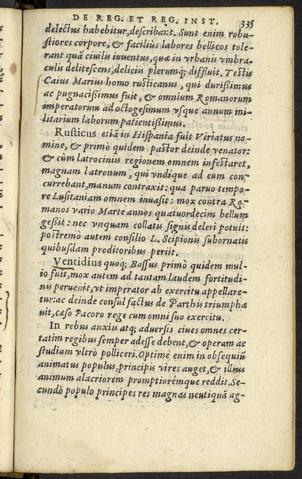 DE REG. ET REG. INST. 335
delectus habebitur, describant. Sunt enim robu-
stiores corpore, & facilius labores bellicos tole-
rant quã ciuilis iuuentus, qua in vrbanis vmbra-
culis delitescens, delicijs plerumq; diffluit. Testis
Caius Marius homo rusticanus, qui durissimus
ac pugnacissimus fuit, & omnium Romanorum
imperatorum ad octogesimum vsque annum mi-
litarium laborum patientissimus.
Rusticus etiã in Hispania fuit Viriatus no-
mine, & primò quidem pastor deinde venator:
& cùm latrociniis regionem omnem infestaret,
magnam latronum, qui vndique ad eum con-
currebant, manum contraxit: qua paruo tempo-
re Lusitaniam omnem inuasit: mox contra Ro-
manos vario Marte annos quatuordecim bellum
gessit: nec vnquam collatis signis deleri potuit:
postremò autem consilio L. Scipionis subornatis
quibusdam proditoribus periit.
Ventidius quoq; Bassus primò quidem mul-
io fuit, mox autem ad tantam laudem fortitudi-
nis peruenit, vt imperator ab exercitu appellare-
tur: ac deinde consul factus de Parthis triumpha
uit, cæso Pacoro rege cum omni suo exercitu.
In rebus anxiis atq; aduersis ciues omnes cer-
tatim regibus semper adesse debent, & operam ac
studium vltrò polliceri. Optimè enim in obsequiũ
animatus populus, principis vires auget, & illius
animum alacriorem promptiorémque reddit. Se-
cundò populo principes res magnas neutiquã ag-